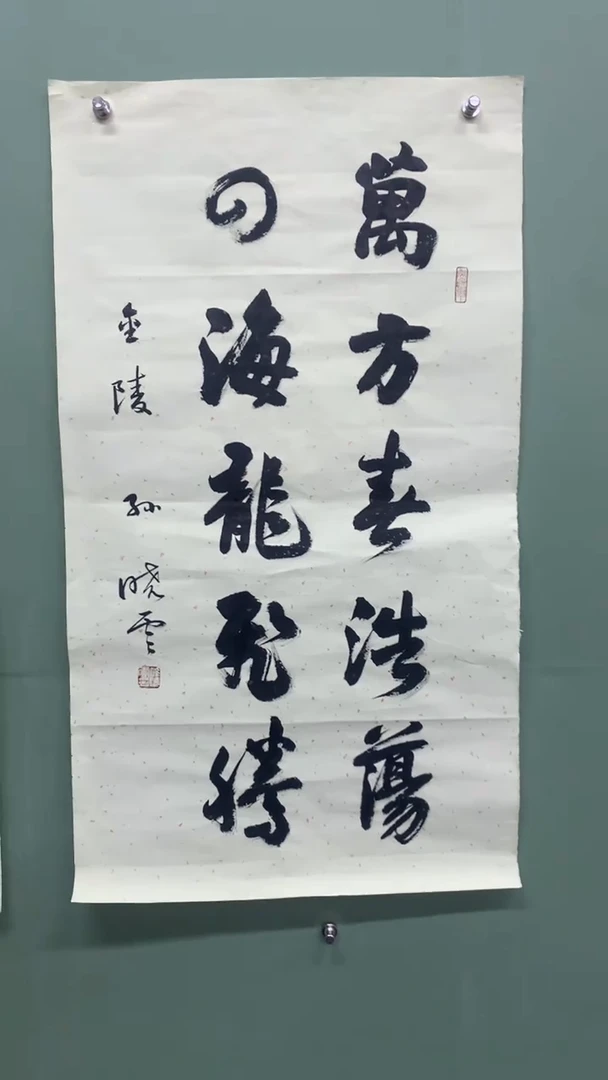 萬方春浩蕩
四海龍飛騰
金陵 孫曉雲